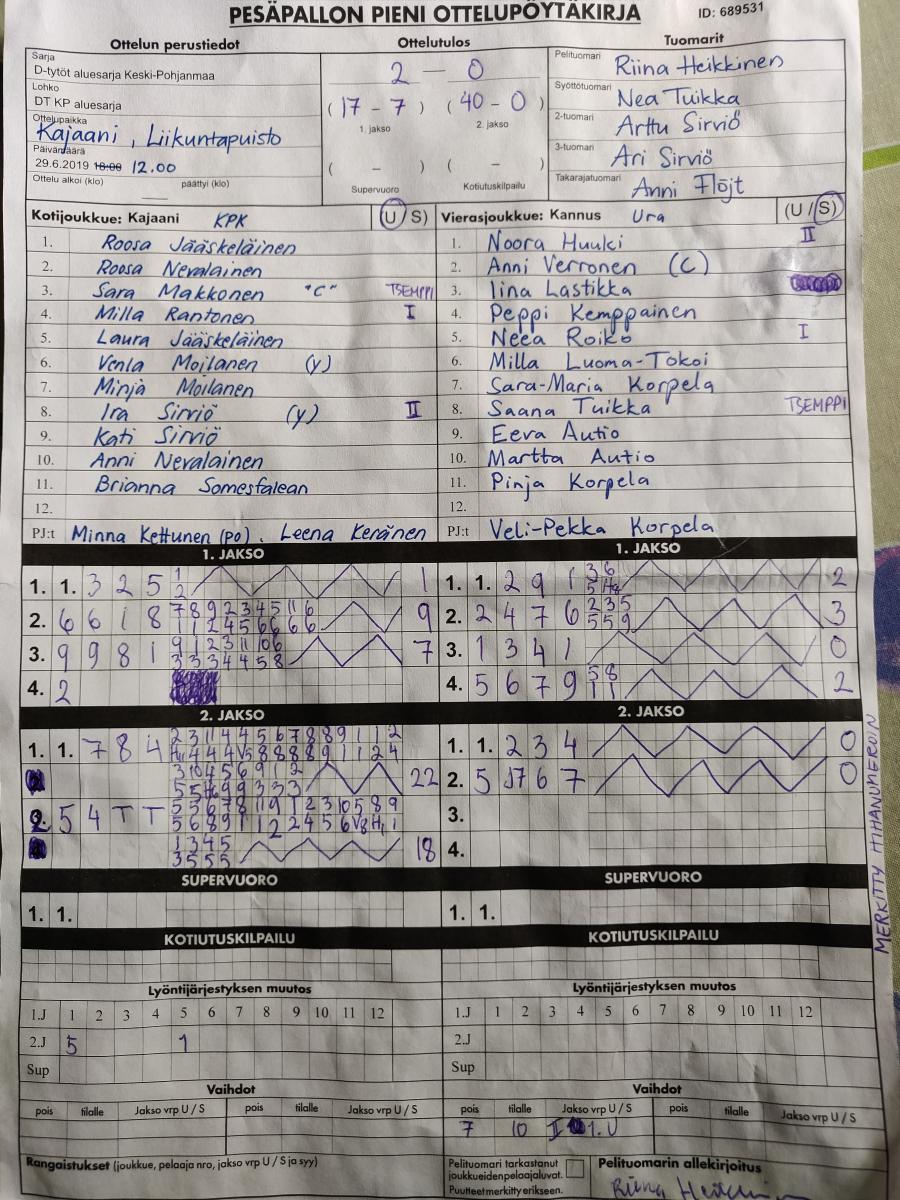 PESÄPALLON PIENI OTTELUPÖYTÄKIRJA
ID: 689531
Ottelun perustiedot
Sarja
D-tytöt aluesarja Keski-Pohjanmaa
Lohko
DT KP aluesarja
Ottelupaikka
Kajaani, Liikuntapuisto
Päivämäärä
29.6.2019 18:00 12.00
Ottelu alkoi (klo) päättyi (klo)
Ottelutulos
2 — 0
(17 - 7) (40 - 0)
1. jakso 2. jakso
( - ) ( - )
Supervuoro Kotiutuskilpailu
Tuomarit
Pelituomari Riina Heikkinen
Syöttötuomari Nea Tuikka
2-tuomari Arttu Sirviö
3-tuomari Ari Sirviö
Takarajatuomari Anni Flöjt
Kotijoukkue: Kajaani KPK (U/S)
1. Roosa Jääskeläinen
2. Roosa Nevalainen
3. Sara Makkonen "C" TSEMPPI
4. Milla Rantonen I
5. Laura Jääskeläinen
6. Venla Moilanen (y)
7. Minja Moilanen
8. Ira Sirviö (y) II
9. Kati Sirviö
10. Anni Nevalainen
11. Brianna Somesfalean
12.
PJ:t Minna Kettunen (po), Leena Keränen
Vierasjoukkue: Kannus Ura (U/S)
1. Noora Huuki II
2. Anni Verronen (C)
3. Iina Lastikka
4. Peppi Kemppainen
5. Neea Roiko I
6. Milla Luoma-Tokoi
7. Sara-Maria Korpela
8. Saana Tuikka TSEMPPI
9. Eeva Autio
10. Martta Autio
11. Pinja Korpela
12.
PJ:t Veli-Pekka Korpela
1. JAKSO
1. 1. 3 2 5 1 1
2
2. 6 6 1 8 7 8 9 2 3 4 5 11 6 9
1 1 2 4 5 6 6 6 6
3. 9 9 8 1 9 1 2 3 11 10 6 7
3 3 3 4 4 5 8
4. 2
1. JAKSO
1. 1. 2 9 1 3 6 2
2. 2 4 7 6 2 3 5 3
5 5 9
3. 1 3 4 1 0
4. 5 6 7 9 5 8 2
1 1
2. JAKSO
1. 1. 7 8 4
22
2. 5 4 T T
1 3 4 5 18
3 5 5 5
2. JAKSO
1. 1. 2 3 4 0
2. 5 J7 6 7 0
3.
4.
MERKITTY HIHANUMEROIN
SUPERVUORO
1. 1.
SUPERVUORO
1. 1.
KOTIUTUSKILPAILU
KOTIUTUSKILPAILU
Lyöntijärjestyksen muutos
1.J 1 2 3 4 5 6 7 8 9 10 11 12
2.J 5 1
Sup
Lyöntijärjestyksen muutos
1.J 1 2 3 4 5 6 7 8 9 10 11 12
2.J
Sup
Vaihdot
pois tilalle Jakso vrp U / S pois tilalle Jakso vrp U / S
Vaihdot
pois tilalle Jakso vrp U / S pois tilalle Jakso vrp U / S
7 10 I 1. U
Rangaistukset (joukkue, pelaaja nro, jakso vrp U / S ja syy)
Pelituomari tarkastanut
joukkueidenpelaajaluvat.
Puutteet merkitty erikseen.
Pelituomarin allekirjoitus